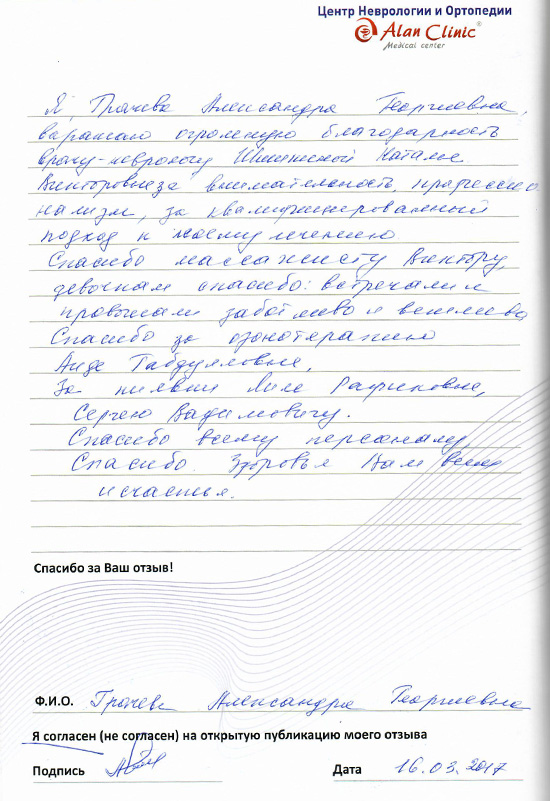 Центр Неврологии и Ортопедии
Alan Clinic®
Medical center
Я, Грачева Александра Георгиевна,
выражаю огромную благодарность
врачу-неврологу Наталье
Викторовне за внимательность, профессио
нализм, за квалифицированный
подход к моему лечению
Спасибо массажисту Виктору,
девочкам спасибо: встречали и
провожали заботливо и вежливо
Спасибо за озонотерапию
Аиде Габдулловне,
За пиявки Лиле Рафиковне,
Сергею Вадимовичу.
Спасибо всему персоналу
Спасибо. Здоровья Вам всем
и счастья.
Спасибо за Ваш отзыв!
Ф.И.О. Грачева Александра Георгиевна
Я согласен (не согласен) на открытую публикацию моего отзыва
Подпись Дата 16.03.2017